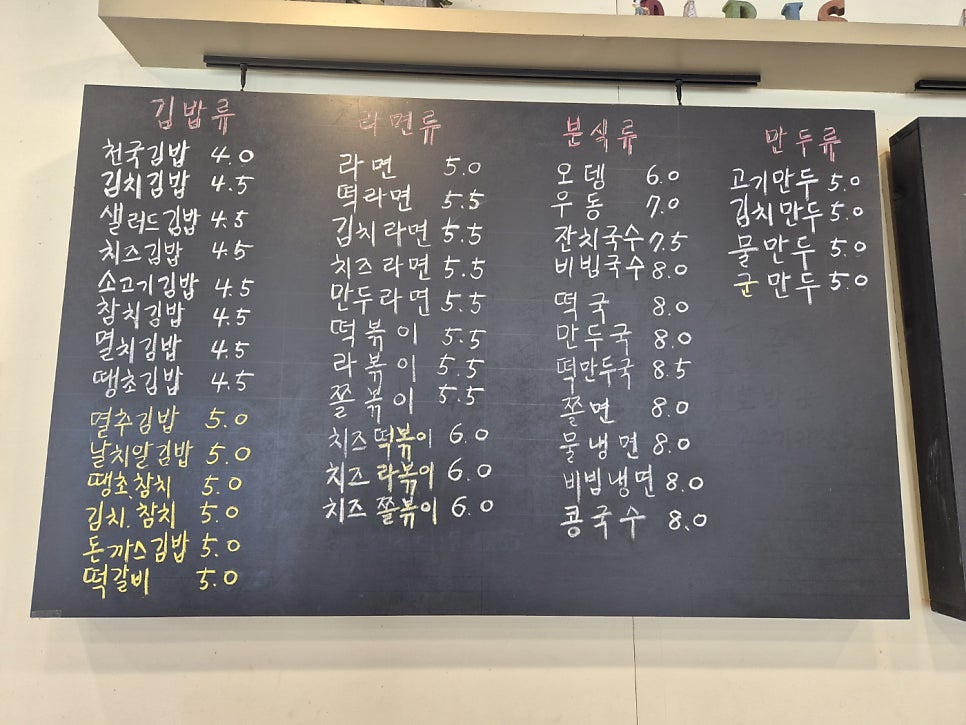 PARIS
김밥류
천국김밥 4.0
김치김밥 4.5
샐러드김밥 4.5
치즈김밥 4.5
소고기김밥 4.5
참치김밥 4.5
멸치김밥 4.5
땡초김밥 4.5
멸추김밥 5.0
날치알김밥 5.0
땡초.참치 5.0
김치.참치 5.0
돈까스김밥 5.0
떡갈비 5.0
라면류
라면 5.0
떡라면 5.5
김치라면 5.5
치즈라면 5.5
만두라면 5.5
떡볶이 5.5
라볶이 5.5
쫄볶이 5.5
치즈떡볶이 6.0
치즈라볶이 6.0
치즈쫄볶이 6.0
분식류
오뎅 6.0
우동 7.0
잔치국수 7.5
비빔국수 8.0
떡국 8.0
만두국 8.0
떡만두국 8.5
쫄면 8.0
물냉면 8.0
비빔냉면 8.0
콩국수 8.0
만두류
고기만두 5.0
김치만두 5.0
물만두 5.0
군만두 5.0